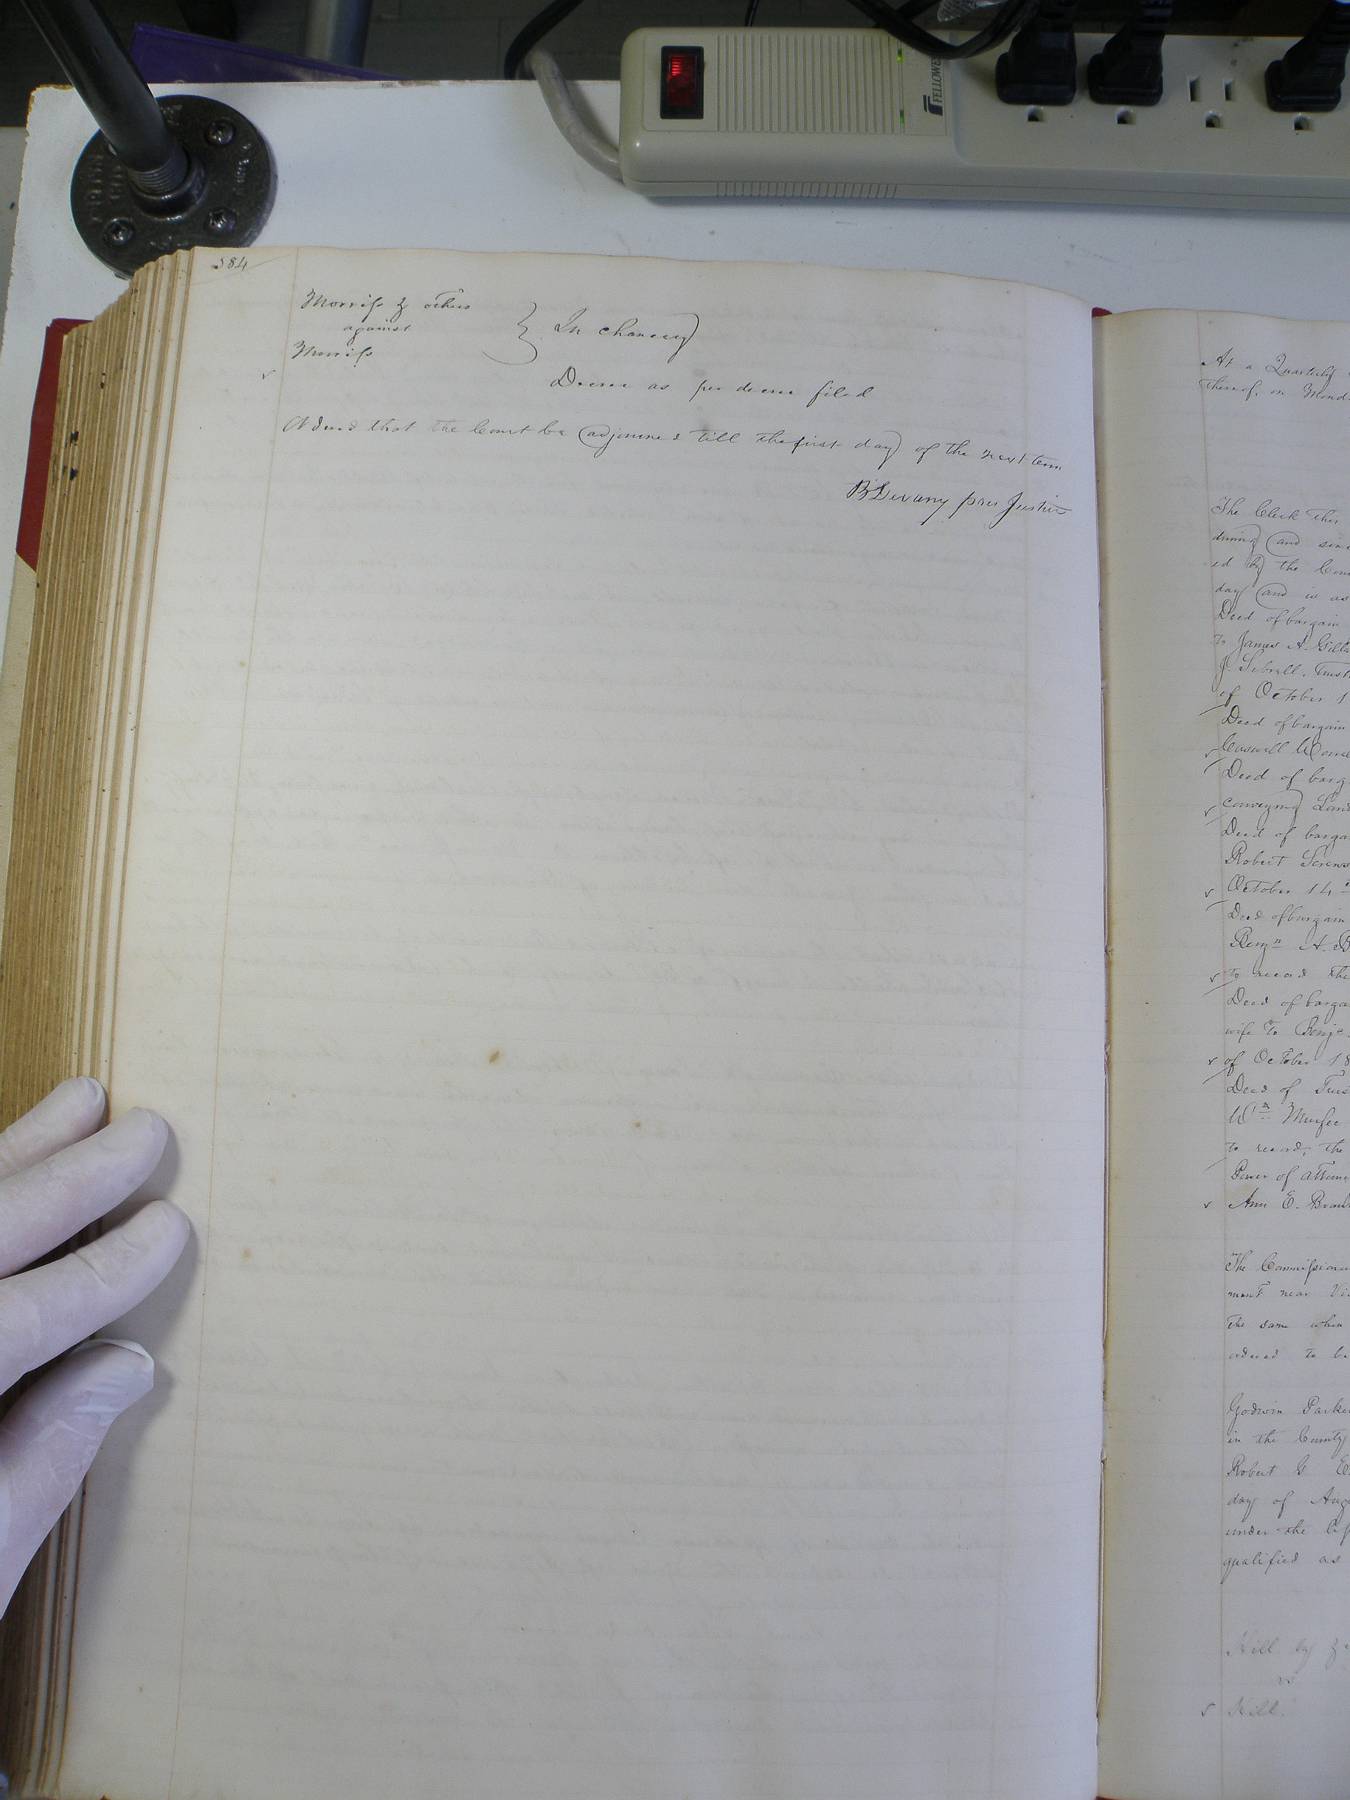 FELLOWES
384
Morriss & others
against
Morriss
In chancery
Decree as per decree filed
Ordered that the Court be adjourned till the first day of the next term
B Devany pres Justice
At a Quarterly
thereof, on Mond
The Clerk this
during and sinc
ed by the Cour
day and is as
Deed of bargain
To James A. Gill
J. Sebrell, Trust
of October 1
Deed of bargain
Deed of barg
conveying Land
Deed of barga
Robert Screws
October 14
Deed of bargain
Benjn A. B
to record the
Deed of barga
wife To Benjn
of October 18
Deed of Trus
Wm Murfee
to record, the
Power of attorne
Ann E. Bra
The Commissione
ment near Vi
the same when
ordered to be
Godwin Parke
in the County
Robert G
day of Aug
under the
qualified as
Hill by &c
vs
Hill